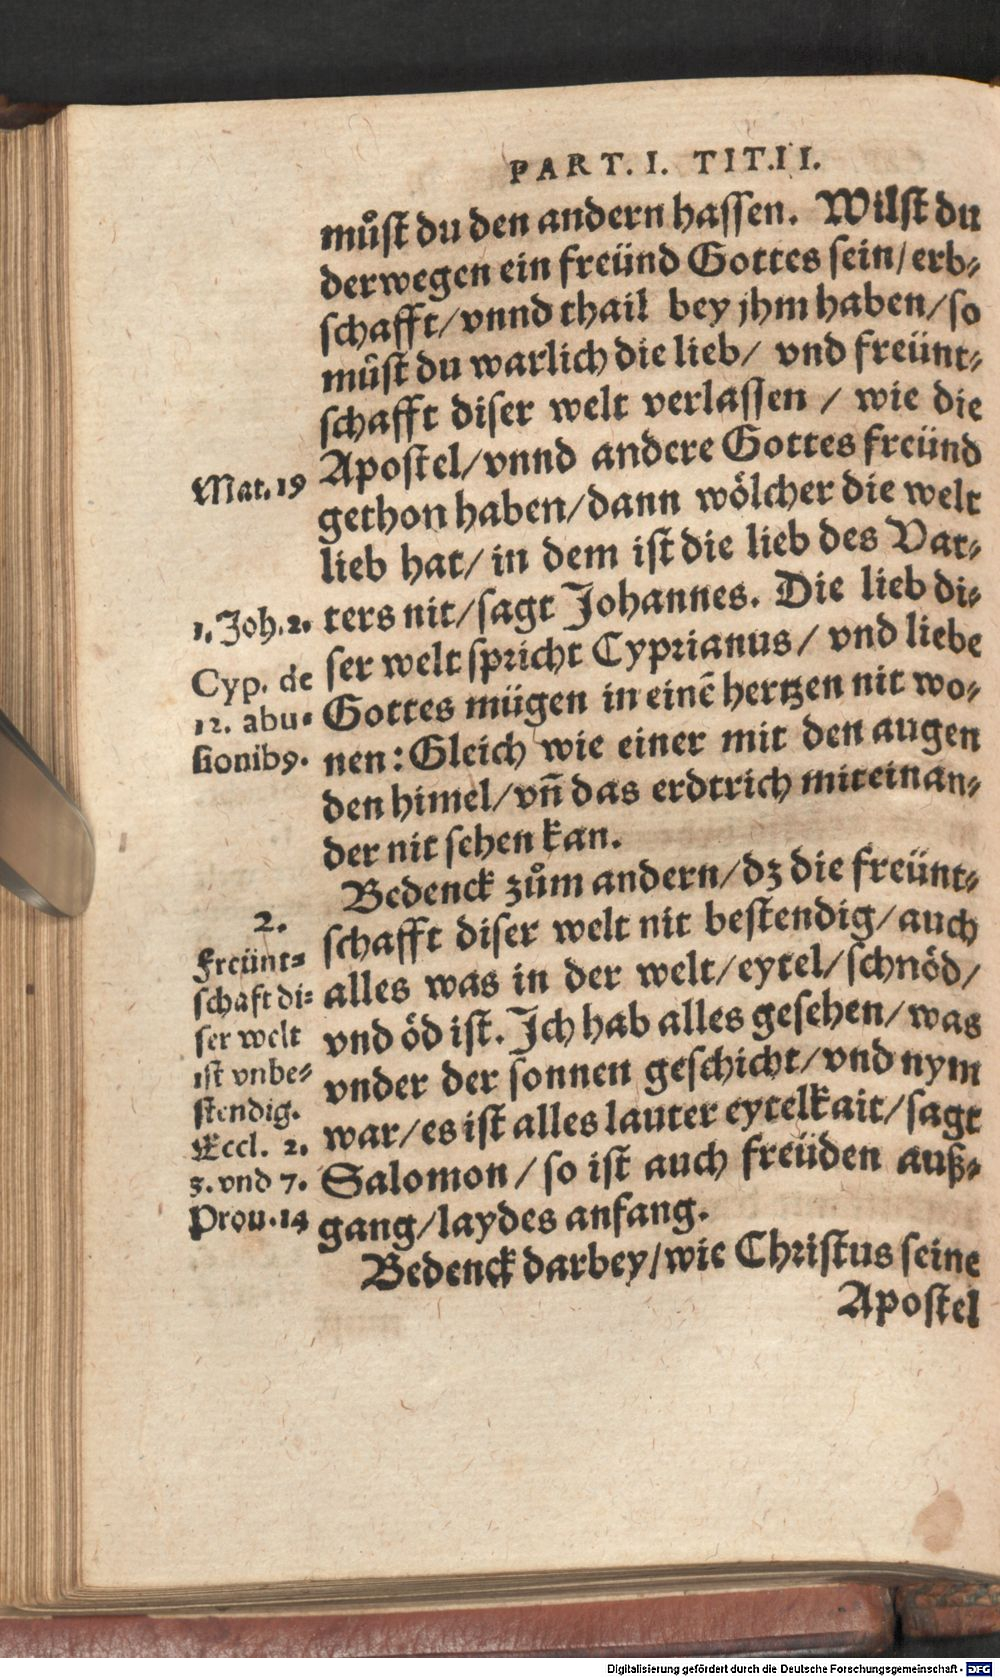 PART. I. TIT. II.
můſt du den andern haſſen. Wilſt du
derwegen ein freünd Gottes ſein/ erb⸗
ſchafft/ vnnd thail bey jhm haben/ ſo
můſt du warlich die lieb/ vnd freünt⸗
ſchafft diſer welt verlaſſen / wie die
Apoſtel/ vnnd andere Gottes freünd
gethon haben/ dann wölcher die welt
lieb hat/ in dem iſt die lieb des Vat⸗
ters nit/ ſagt Johannes. Die lieb di⸗
ſer welt ſpricht Cyprianus/ vnd liebe
Gottes mügen in einē hertzen nit wo⸗
nen: Gleich wie einer mit den augen
den himel/ vñ das erdtrich miteinan⸗
der nit ſehen kan.
Bedenck zům andern/ dz die freünt⸗
ſchafft diſer welt nit beſtendig/ auch
alles was in der welt/ eytel/ ſchnöd/
vnd öd iſt. Ich hab alles geſehen/ was
vnder der ſonnen geſchicht/ vnd nym
war/ es iſt alles lauter eytelkait/ ſagt
Salomon/ ſo iſt auch freüden auß⸗
gang/ laydes anfang.
Bedenck darbey/ wie Chriſtus ſeine
Apoſtel
Mat. 19
1. Joh. 2.
Cyp. de
12. abu⸗
ſionibꝰ.
2.
Freünt⸗
ſchaft di⸗
ſer welt
iſt vnbe⸗
ſtendig.
Eccl. 2.
3. vnd 7.
Prou. 14
Digitalisierung gefördert durch die Deutsche Forschungsgemeinschaft - DFG